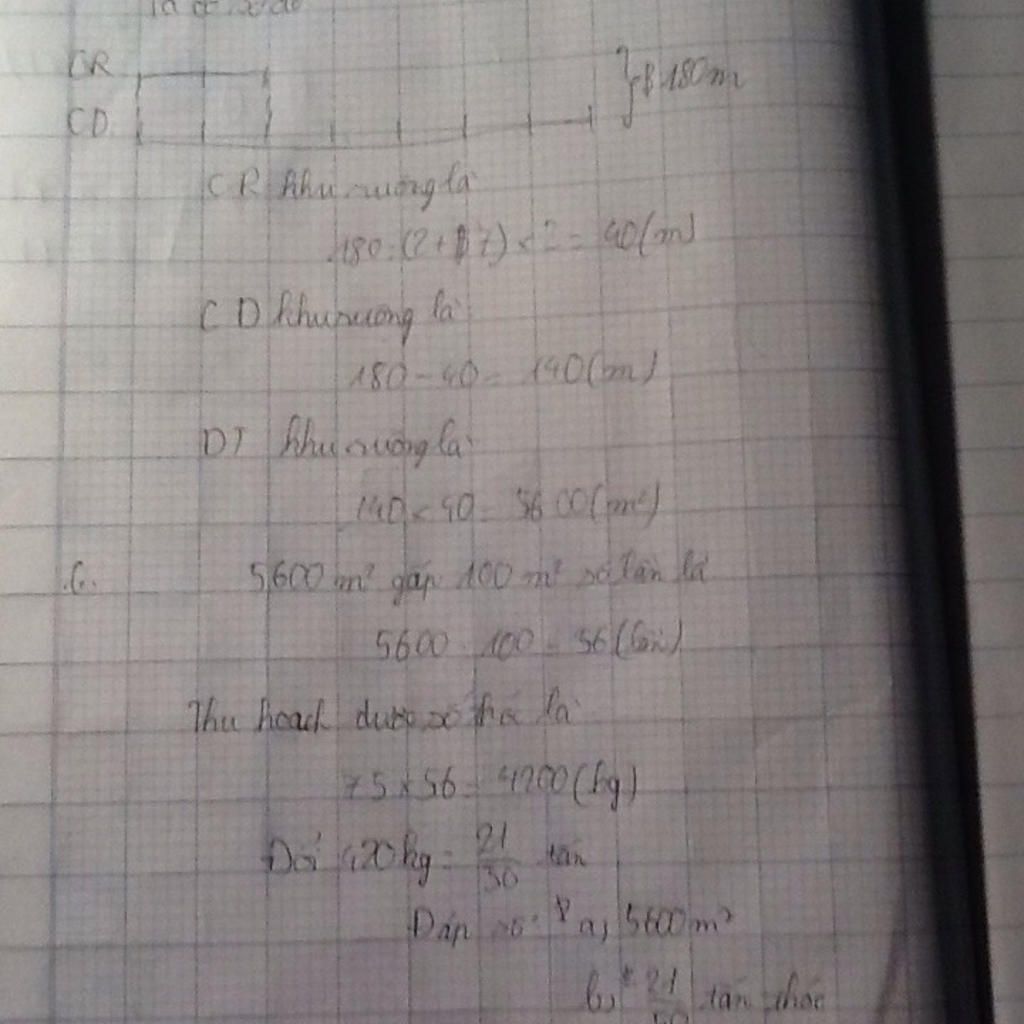 CR
CD 180m
CR khu ruộng là
180 : (2 + 7) × 2 = 40 (m)
CD khu ruộng là
180 - 40 = 140 (m)
DT khu ruộng là
140 × 40 = 5600 (m²)
5600 m² gấp 100 m² số lần là
5600 : 100 = 56 (lần)
Thu hoạch được số thóc là
75 × 56 = 4200 (kg)
Đổi 420kg = 21/50 tấn
Đáp số: a, 5600 m²
b, 21 tấn thóc